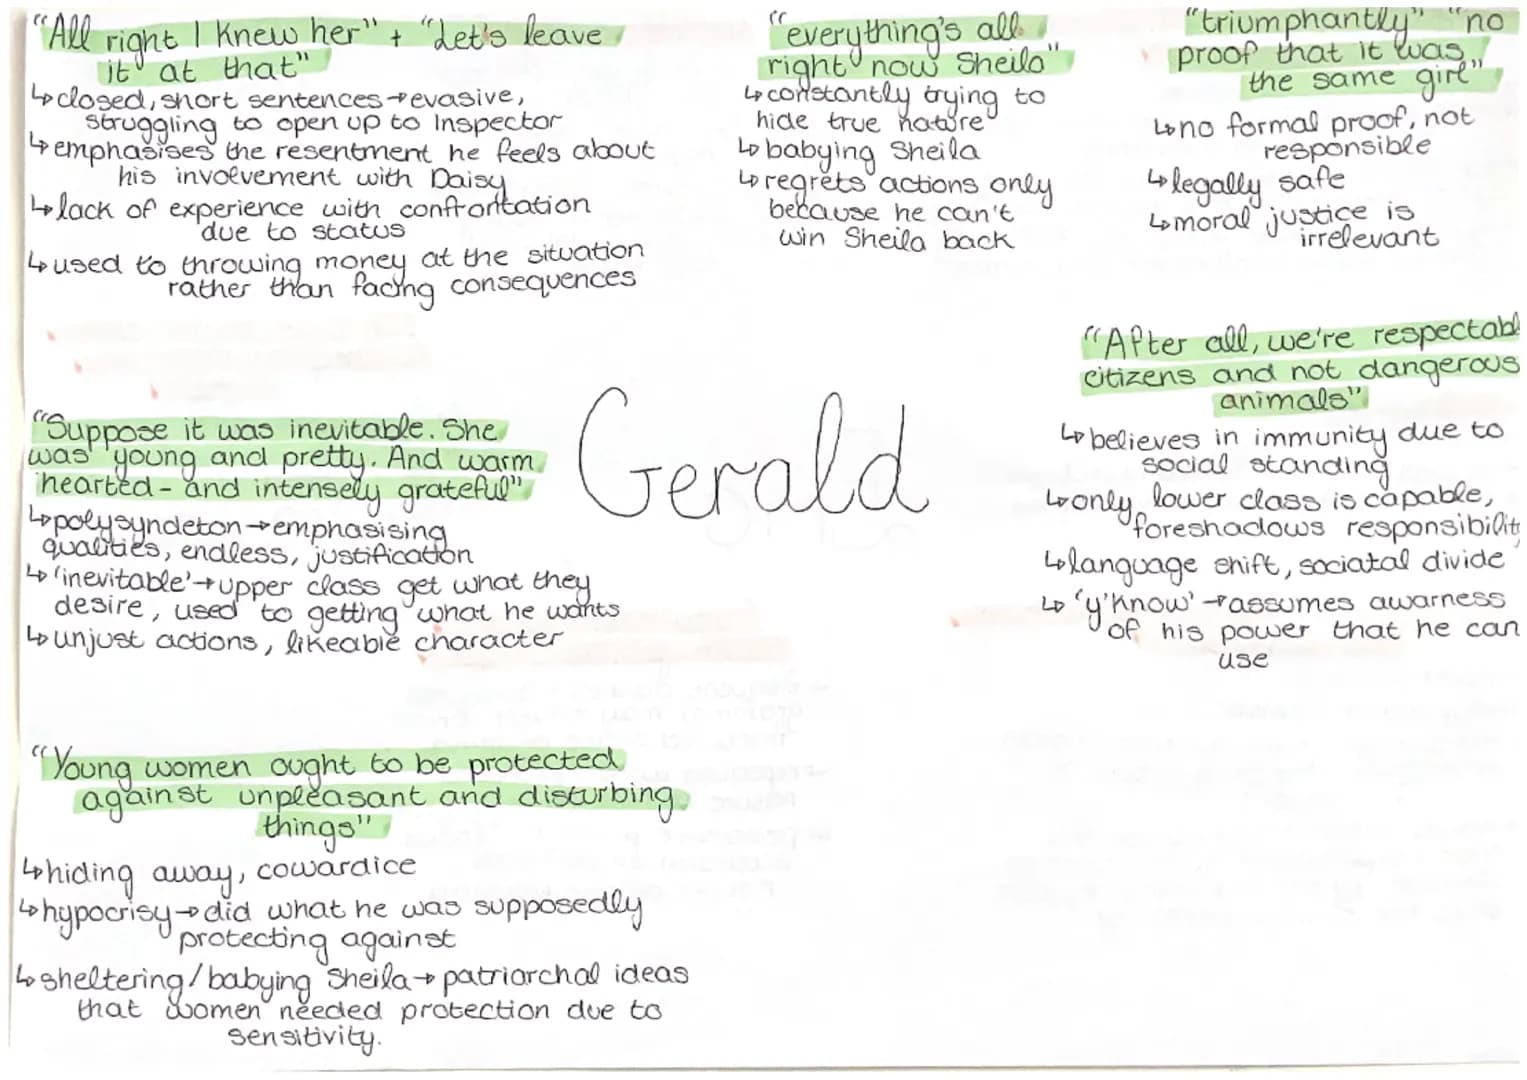 "All right I knew her" + "Let's leave
it at that"
↳closed, short sentences→evasive,
struggling to open up to Inspector
↳emphasises the resentment he feels about
his involvement with Daisy
↳lack of experience with confrontation
due to status
↳used to throwing money at the situation
rather than facing consequences
"everything's all
right now Sheila"
↳constantly trying to
hide true nature
↳babying Sheila
↳regrets actions only
because he can't
win Sheila back
"triumphantly" "no
proof that it was
the same girl"
↳no formal proof, not
responsible
↳legally safe
↳moral justice is
irrelevant
"Suppose it was inevitable. She
was young and pretty. And warm
hearted - and intensely grateful"
↳polysyndeton→emphasising
qualities, endless, justification
↳'inevitable'→upper class get what they
desire, used to getting what he wants
↳unjust actions, likeable character
Gerald
"After all, we're respectabl
citizens and not dangerous
animals"
↳believes in immunity due to
social standing
↳only lower class is capable,
foreshadows responsibilit
↳language shift, sociatal divide
↳'y'know'→assumes awarness
of his power that he can
use
"Young women ought to be protected
against unpleasant and disturbing
things"
↳hiding away, cowardice
↳hypocrisy→did what he was supposedly
protecting against
↳sheltering/babying Sheila→patriarchal ideas
that women needed protection due to
sensitivity.